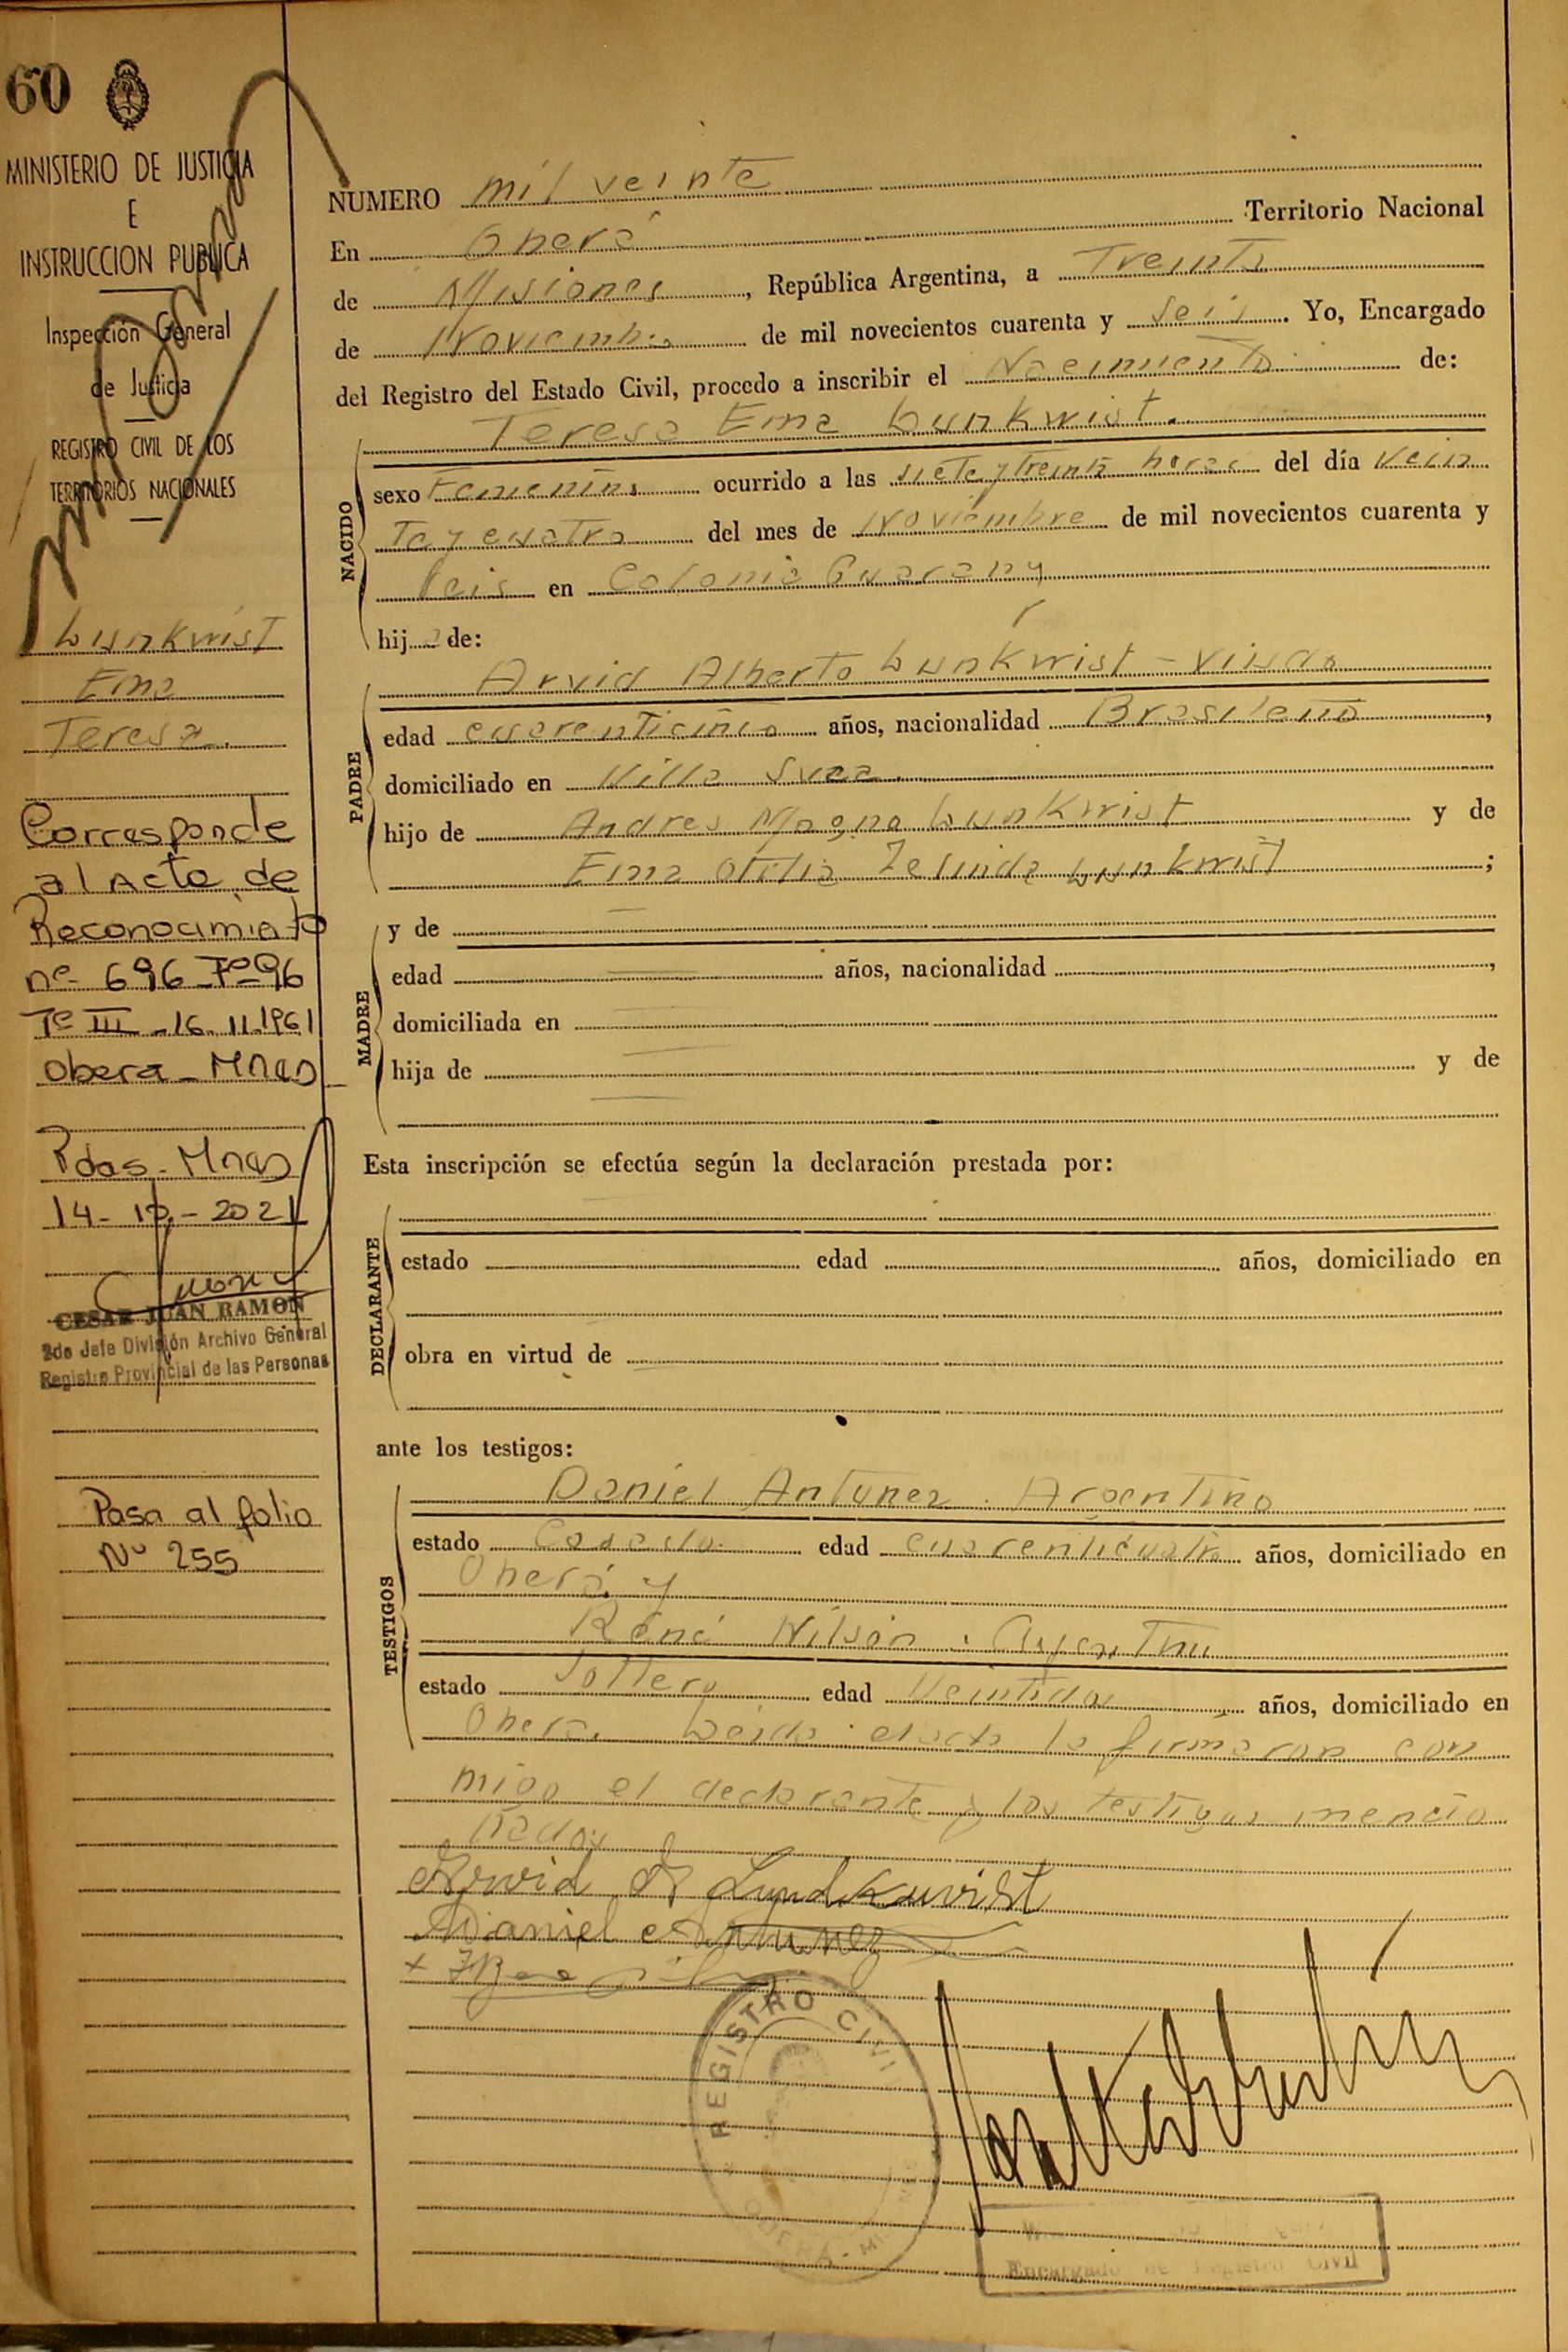 60
MINISTERIO DE JUSTICIA
E
INSTRUCCION PUBLICA
Inspección General
de Justicia
REGISTRO CIVIL DE LOS
TERRITORIOS NACIONALES
Lunkwist
Ema
Teresa.
Corresponde
al Acta de
Reconocimiento
nº 696 Fº 96
Tº III - 16.11.1961
Obera - Mnes
Pdas - Mnes
14-10-2021
CESAR JUAN RAMON
2do Jefe División Archivo General
Registro Provincial de las Personas
Pasa al folio
Nº 255
NUMERO mil veinte
En Oberá Territorio Nacional
de Misiones, República Argentina, a Treinta
de Noviembre de mil novecientos cuarenta y seis. Yo, Encargado
del Registro del Estado Civil, procedo a inscribir el Nacimiento de:
Teresa Ema Lunkwist.
NACIDO
sexo Femenino ocurrido a las siete y treinta horas del día vein
ta y cuatro del mes de Noviembre de mil novecientos cuarenta y
seis en Colonia Guarany
hija de:
PADRE
Arvid Alberto Lunkwist - viudo
edad cuarenticinco años, nacionalidad Brasileño,
domiciliado en Villa Svea.
hijo de Andres Magno Lunkwist y de
Ema Otilia Lunkwist;
MADRE
y de
edad años, nacionalidad ,
domiciliada en
hija de y de
Esta inscripción se efectúa según la declaración prestada por:
DECLARANTE
estado edad años, domiciliado en
obra en virtud de
ante los testigos:
TESTIGOS
Daniel Antunez. Argentino
estado Casado edad cuarenticuatro años, domiciliado en
Oberá y
René Wilson. Argentino
estado Soltero edad Veintidos años, domiciliado en
Oberá. Leida el acta la firmaron con
migo el declarante y los testigos mencio
nados
Arvid A Lyndkuvist
Daniel Antunez
REGISTRO CIVIL
OBERA - MISIONES
Encargado de Registro Civil